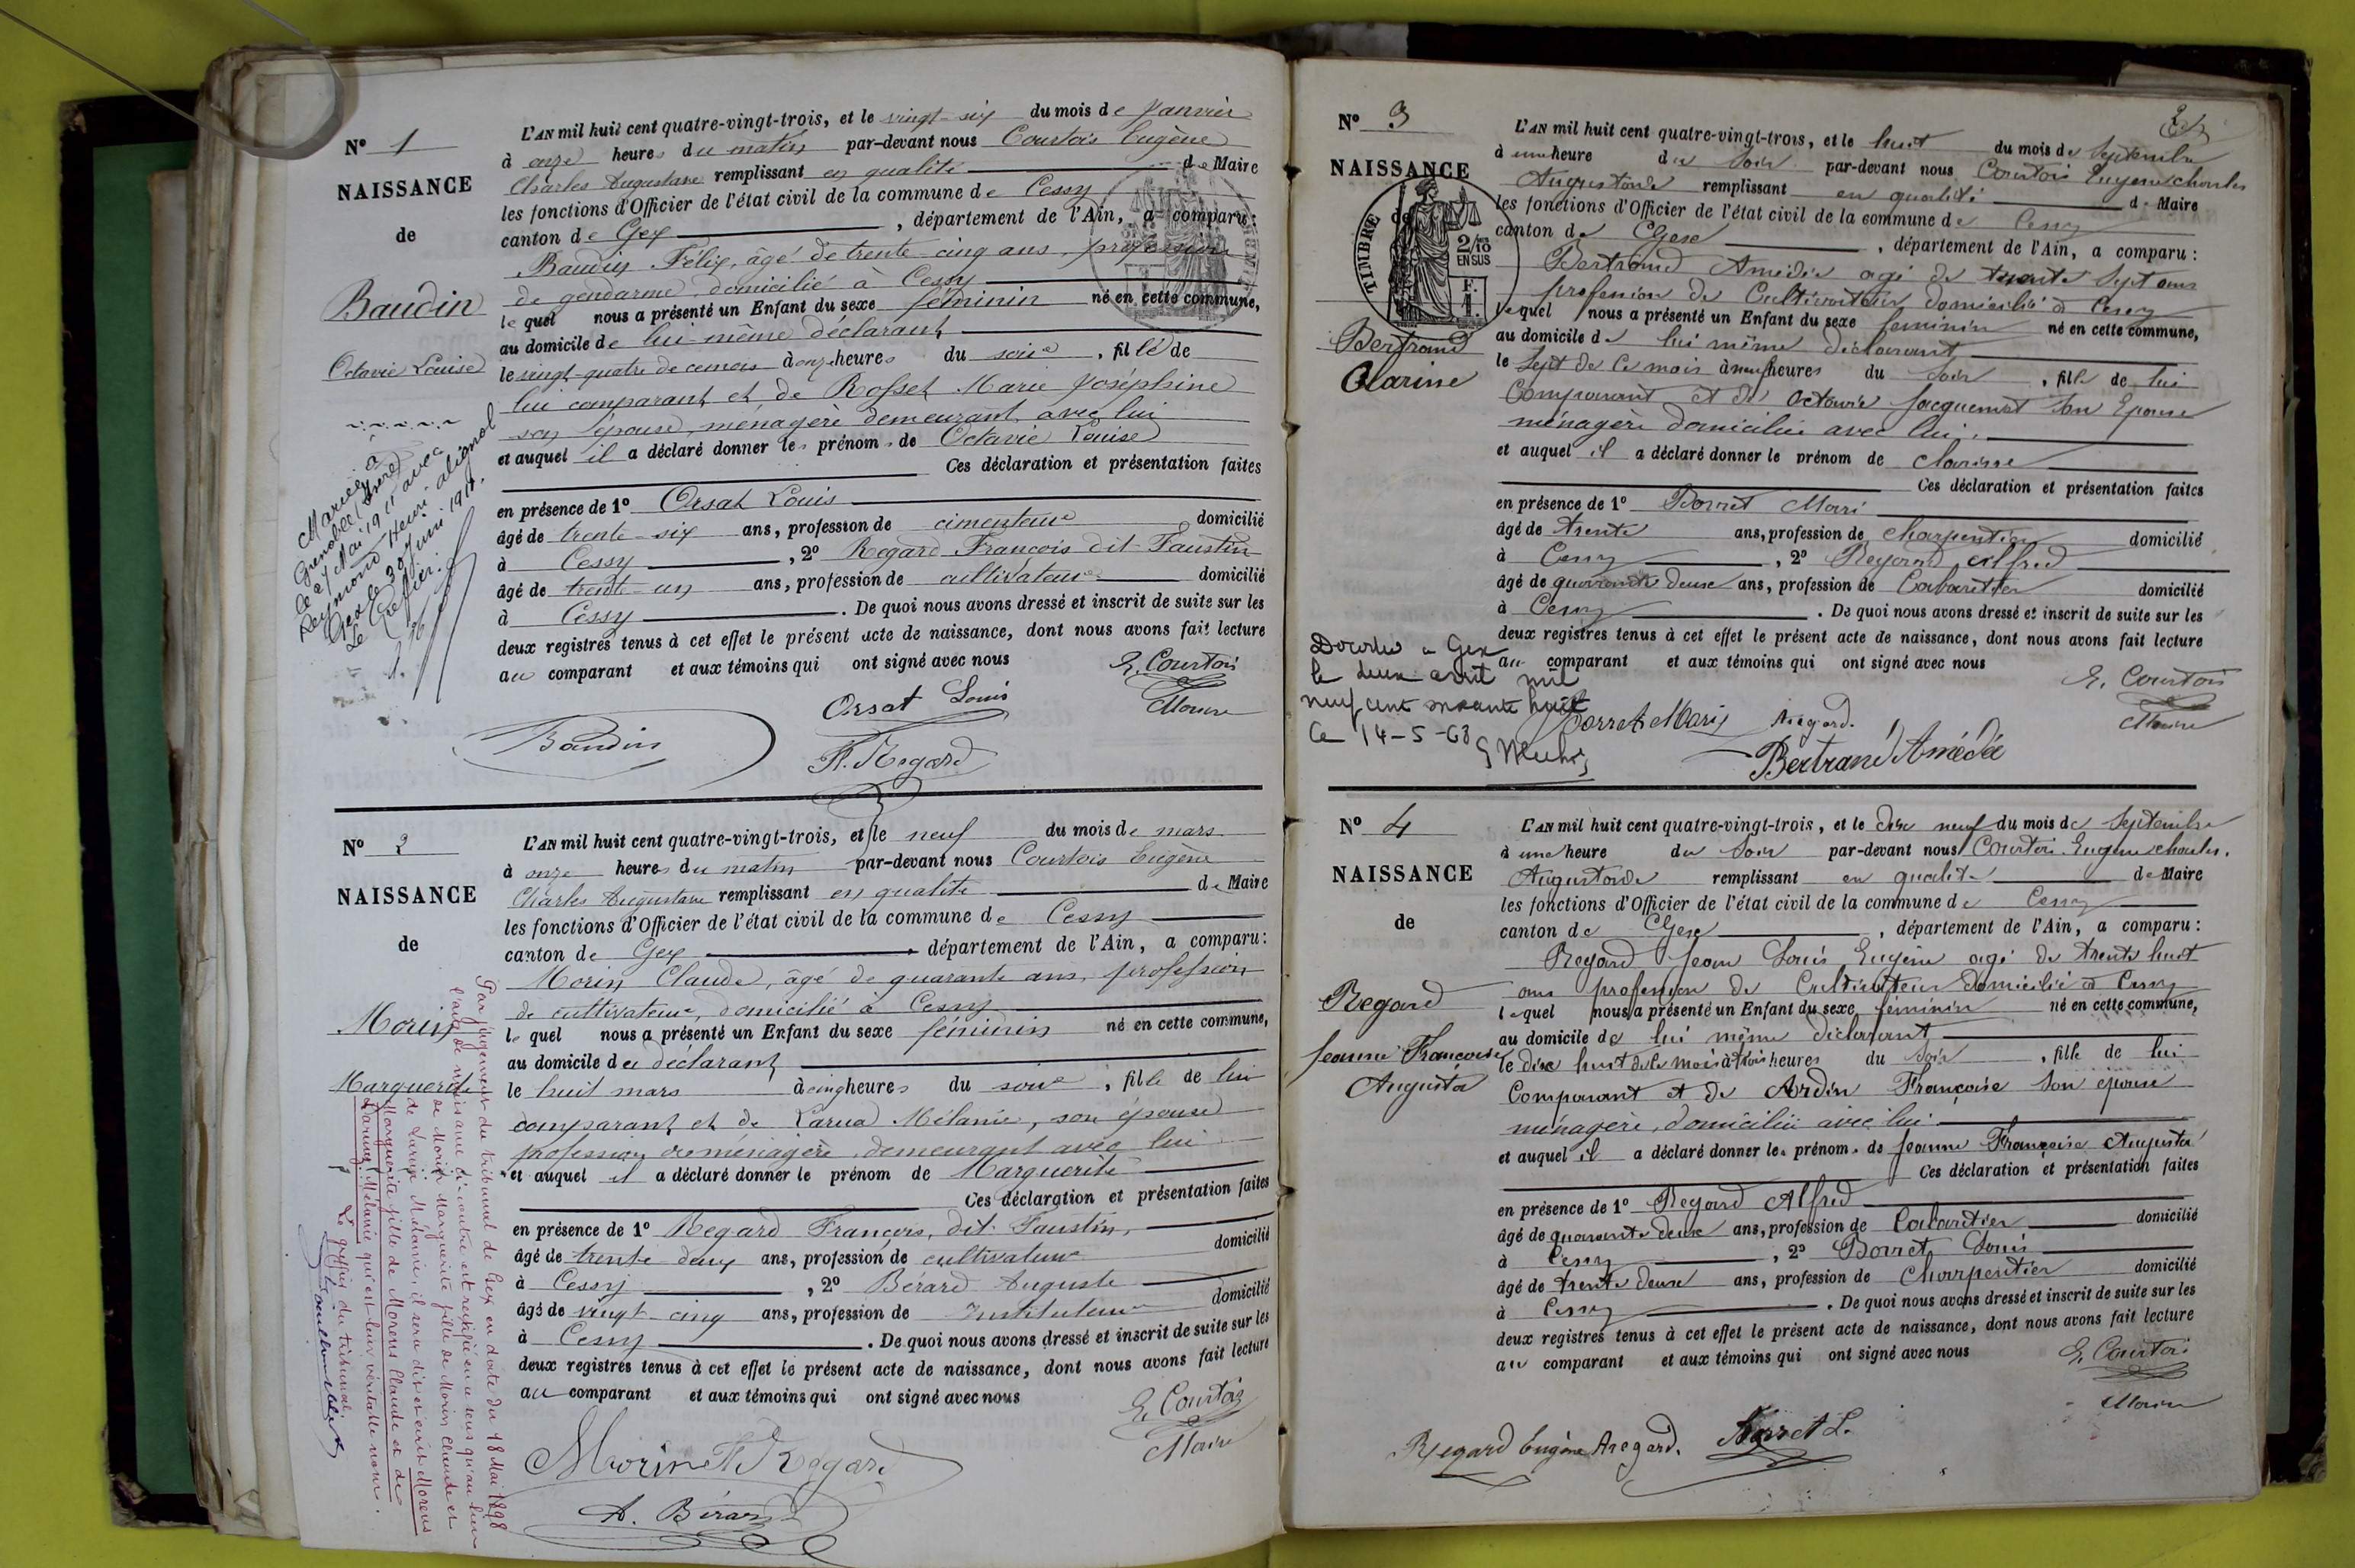 N° 1
NAISSANCE
de
Baudin
Octavie Louise
Mariée à
Grenoble (Isère)
le 27 Mai 1911 avec
Reymond Henri
Gex le 30 Juin 1911.
Le Greffier.
L'AN mil huit cent quatre-vingt-trois, et le vingt-six du mois de Janvier
à onze heures du matin par-devant nous Courtois Eugène
Charles Augustave remplissant en qualité de Maire
les fonctions d'Officier de l'état civil de la commune de Cessy
canton de Gex, département de l'Ain, a comparu :
Baudin Félix, âgé de trente-cinq ans, profession
de gendarme, domicilié à Cessy
lequel nous a présenté un Enfant du sexe féminin né en cette commune,
au domicile de lui-même déclarant
le vingt-quatre de ce mois à onze heures du soir, fille de
lui comparant et de Rosset Marie Joséphine
son épouse, ménagère demeurant avec lui
et auquel il a déclaré donner les prénoms de Octavie Louise
Ces déclaration et présentation faites
en présence de 1° Orsat Louis
âgé de trente-six ans, profession de cimenteur domicilié
à Cessy, 2° Regard François dit Faustin
âgé de trente-un ans, profession de cultivateur domicilié
à Cessy. De quoi nous avons dressé et inscrit de suite sur les
deux registres tenus à cet effet le présent acte de naissance, dont nous avons fait lecture
au comparant et aux témoins qui ont signé avec nous
E. Courtois
Maire
Orsat Louis
Baudin
F. Regard
N° 2
NAISSANCE
de
Morin
Marguerite
Par jugement du tribunal de Gex en date du 18 Mai 1898
l'acte de naissance ci-contre est rectifié en ce sens qu'au lieu
de Morin Marguerite fille de Morin Claude et
de Larua Mélanie, il sera dit et écrit Morens
Marguerite fille de Morens Claude et de
Larua Mélanie qui est leur véritable nom.
Le greffier du tribunal,
L'AN mil huit cent quatre-vingt-trois, et le neuf du mois de mars
à onze heures du matin par-devant nous Courtois Eugène
Charles Augustave remplissant en qualité de Maire
les fonctions d'Officier de l'état civil de la commune de Cessy
canton de Gex, département de l'Ain, a comparu :
Morin Claude, âgé de quarante ans, profession
de cultivateur, domicilié à Cessy
lequel nous a présenté un Enfant du sexe féminin né en cette commune,
au domicile du déclarant
le huit mars à cinq heures du soir, fille de lui
comparant et de Larua Mélanie, son épouse
profession de ménagère, demeurant avec lui
et auquel il a déclaré donner le prénom de Marguerite
Ces déclaration et présentation faites
en présence de 1° Regard François, dit Faustin,
âgé de trente deux ans, profession de cultivateur domicilié
à Cessy, 2° Bérard Auguste
âgé de vingt-cinq ans, profession de Instituteur domicilié
à Cessy. De quoi nous avons dressé et inscrit de suite sur les
deux registres tenus à cet effet le présent acte de naissance, dont nous avons fait lecture
au comparant et aux témoins qui ont signé avec nous
E. Courtois
Maire
Morin F. Regard
A. Bérard
N° 3
NAISSANCE
de
TIMBRE
2/10 EN SUS
F. 1.
Bertrand
Clarisse
Décédée à Gex
le deux avril mil
neuf cent soixante huit
Ce 14-5-68
L'AN mil huit cent quatre-vingt-trois, et le huit du mois de Septembre
à une heure du Soir par-devant nous Courtois Eugène Charles
Augustave remplissant en qualité de Maire
les fonctions d'Officier de l'état civil de la commune de Cessy
canton de Gex, département de l'Ain, a comparu :
Bertrand Amédée agé de trente Sept ans
profession de Cultivateur domicilié à Cessy
lequel nous a présenté un Enfant du sexe féminin né en cette commune,
au domicile de lui même déclarant
le Sept de Ce mois à neuf heures du Soir, fille de lui
Comparant et de Octavie Jacquemet Son Epouse
ménagère domiciliée avec lui.
et auquel il a déclaré donner le prénom de Clarisse
Ces déclaration et présentation faites
en présence de 1° Borret Mari
âgé de trente ans, profession de Charpentier domicilié
à Cessy, 2° Regard Alfred
âgé de quarante deux ans, profession de Cabaretier domicilié
à Cessy. De quoi nous avons dressé et inscrit de suite sur les
deux registres tenus à cet effet le présent acte de naissance, dont nous avons fait lecture
au comparant et aux témoins qui ont signé avec nous
E. Courtois
Maire
Borret Mari Aregard.
Bertrand Amédée
N° 4
NAISSANCE
de
Regard
Jeanne Françoise
Augusta
L'AN mil huit cent quatre-vingt-trois, et le dix neuf du mois de Septembre
à une heure du Soir par-devant nous Courtois Eugène Charles.
Augustave remplissant en qualité de Maire
les fonctions d'Officier de l'état civil de la commune de Cessy
canton de Gex, département de l'Ain, a comparu :
Regard Jean Louis Eugène agé de trente huit
ans profession de Cultivateur domicilié à Cessy
lequel nous a présenté un Enfant du sexe féminin né en cette commune,
au domicile de lui même déclarant
le dix huit de Ce mois à trois heures du Soir, fille de lui
Comparant et de Ardin Françoise Son épouse
ménagère, domiciliée avec lui.
et auquel il a déclaré donner les prénoms de Jeanne Françoise Augusta
Ces déclaration et présentation faites
en présence de 1° Regard Alfred
âgé de quarante deux ans, profession de Cabaretier domicilié
à Cessy, 2° Borret Louis
âgé de trente deux ans, profession de Charpentier domicilié
à Cessy. De quoi nous avons dressé et inscrit de suite sur les
deux registres tenus à cet effet le présent acte de naissance, dont nous avons fait lecture
au comparant et aux témoins qui ont signé avec nous
E. Courtois
Maire
Regard Eugène Aregard. Borret L.